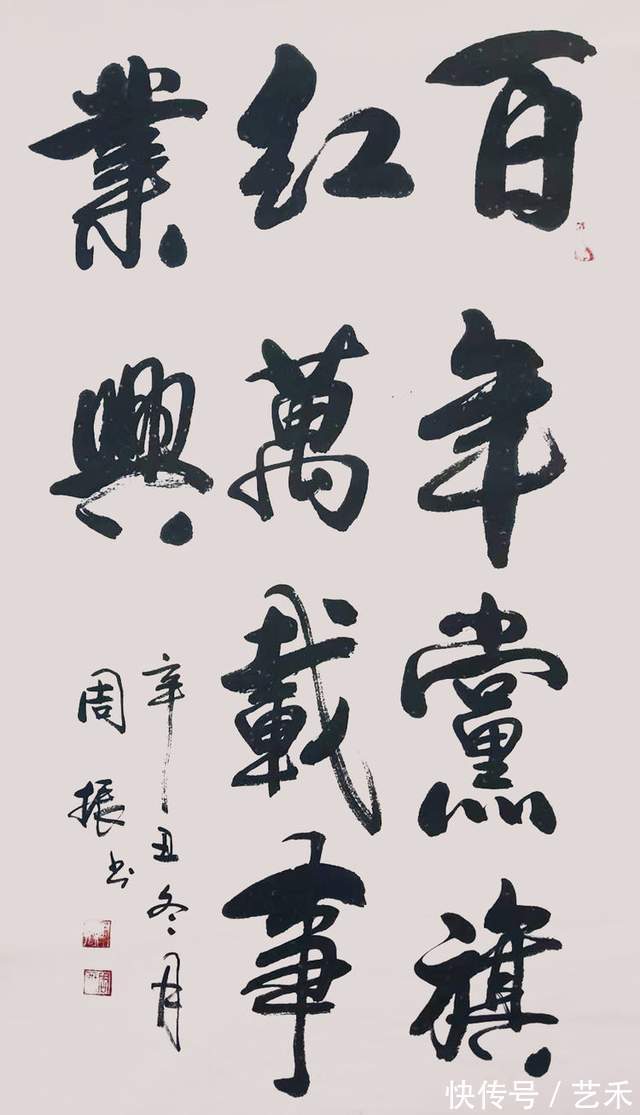 百年黨旗
紅萬載事
業興
辛丑冬月
周振书
快传号 / 艺禾